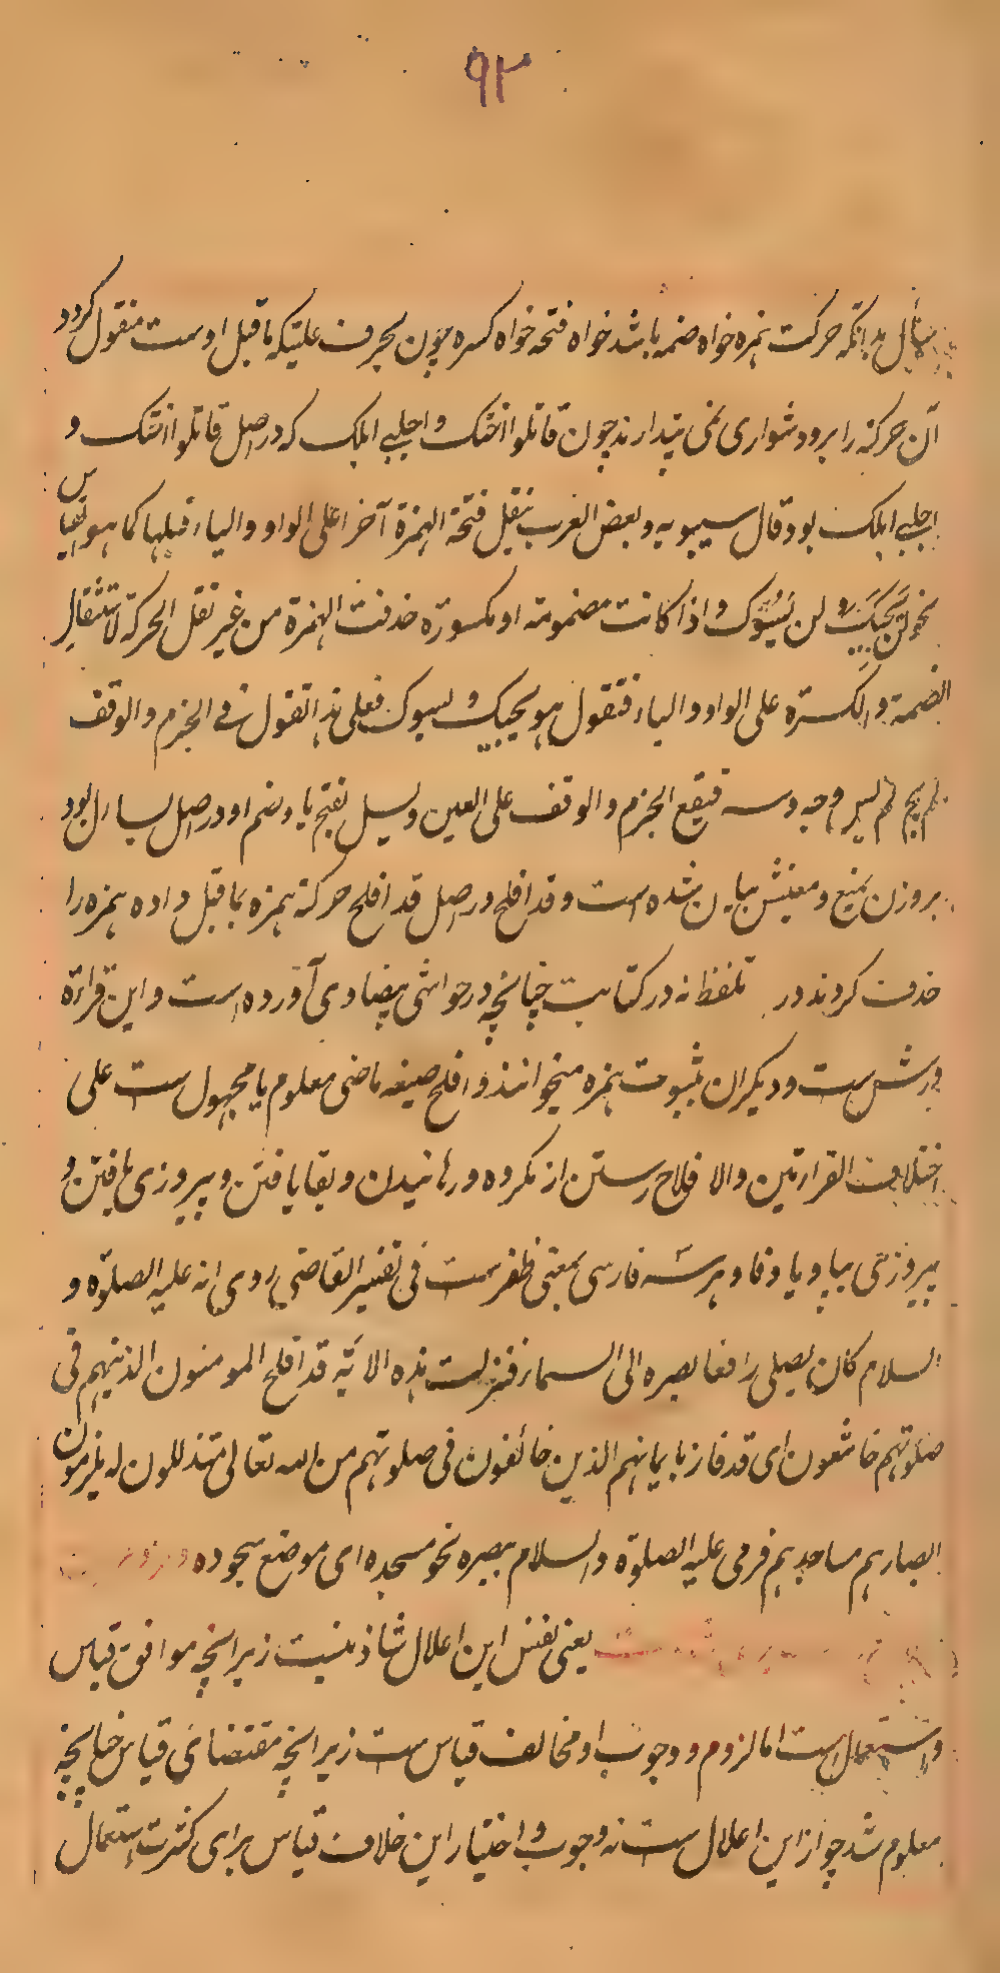 ۹۲
یسأل بدانکه حرکت همزه خواه ضمه باشد خواه فتحه خواه کسره چون بحرف علتیکه ماقبل اوست منقول کردد
آن حرکة را برو دشواری نمی پندارند چون قاتلوا انتک و اجلبی ابلک که در اصل قاتلوا انتک و
اجلبی ابلک بود قال سیبویه و بعض العرب ینقل فتحة الهمزة آخرا علی الواو والیاء قبلها کما هو القیاس
نحو لن یجیک و لن یسوک و اذا کانت مضمومة او مکسورة حذفت الهمزة من غیر نقل الحرکة لاستثقال
الضمة و الکسرة علی الواو والیاء فتقول هو یجیک و یسوک فعلی هذا تقول فی الجزم والوقف
لم یج لم یس و جه و سه فیقع الجزم والوقف علی العین و یسل بفتح یا و ضم او در اصل یسأل بود
بروزن یمنع و معنیش بیان شده است و قد افلح در اصل قد افلح حرکة همزه بماقبل داده همزه را
حذف کردند در تلفظ نه در کتابت چنانچه در حواشی بیضاوی آورده است و این قراءة
ورش ست و دیکران بثبوت همزه میخوانند و افلح صیغه ماضی معلوم یا مجهول ست علی
اختلاف القراءتین والافلاح رستن از مکروه و رهانیدن و بقا یافتن و پیروزی یافتن و
پیروزی بیا و یا و فا و هر سه فارسی بمعنی ظفرست فی تفسیر القاضی روی انه علیه الصلوة و
السلام کان یصلی رافعا بصره الی السماء فنزلت هذه الآیة قد افلح المومنون الذینهم فی
صلوتهم خاشعون ای قد فازبایمانهم الذین خائفون فی صلوتهم من الله تعالی متذللون له یلزمون
ابصارهم مساجدهم فرمی علیه الصلوة والسلام ببصره نحو مسجده ای موضع سجوده
یعنی نفس این اعلال شاذ نیست زیرانچه موافق قیاس
و استعمال ست اما لزوم و وجوب او مخالف قیاس ست زیرانچه مقتضای قیاس چنانچه
معلوم شد جواز این اعلال ست نه وجوب و اختیار این خلاف قیاس برای کثرت استعمال